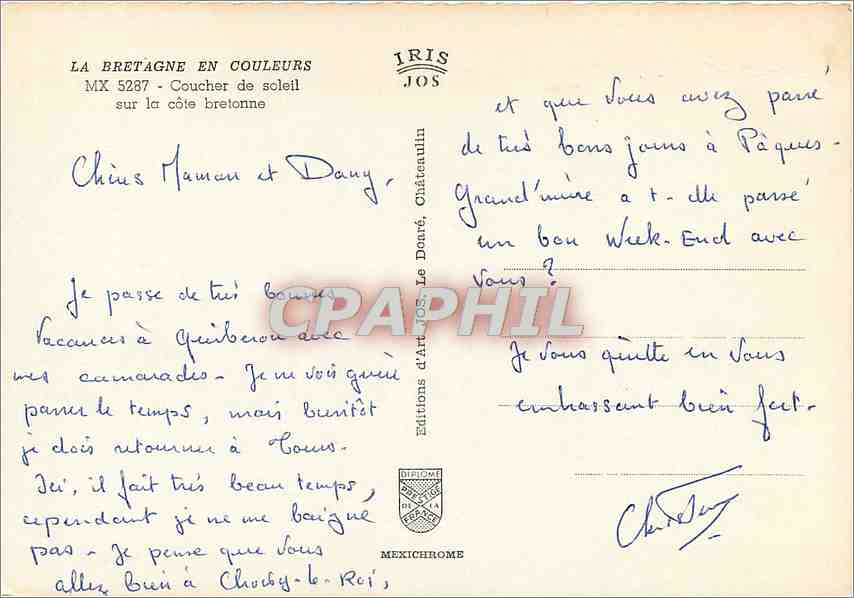 LA BRETAGNE EN COULEURS
MX 5287 - Coucher de soleil
sur la côte bretonne
IRIS
JOS
Chères Maman et Dany,
Je passe de très bonnes
vacances à Quiberon avec
mes camarades - Je ne vois guère
passer le temps, mais bientôt
je dois retourner à Tours.
Ici, il fait très beau temps,
cependant je ne me baigne
pas - Je pense que vous
allez bien à Choisy-le-Roi,
et que vous avez passé
de très bons jours à Pâques -
Grand'mère a t-elle passé
un bon Week-End avec
vous ?
Je vous quitte en vous
embrassant bien fort -
Editions d'Art JOS, Le Doaré, Châteaulin
DIPLOME
PRESTIGE
DE LA
FRANCE
MEXICHROME
CPAPHIL